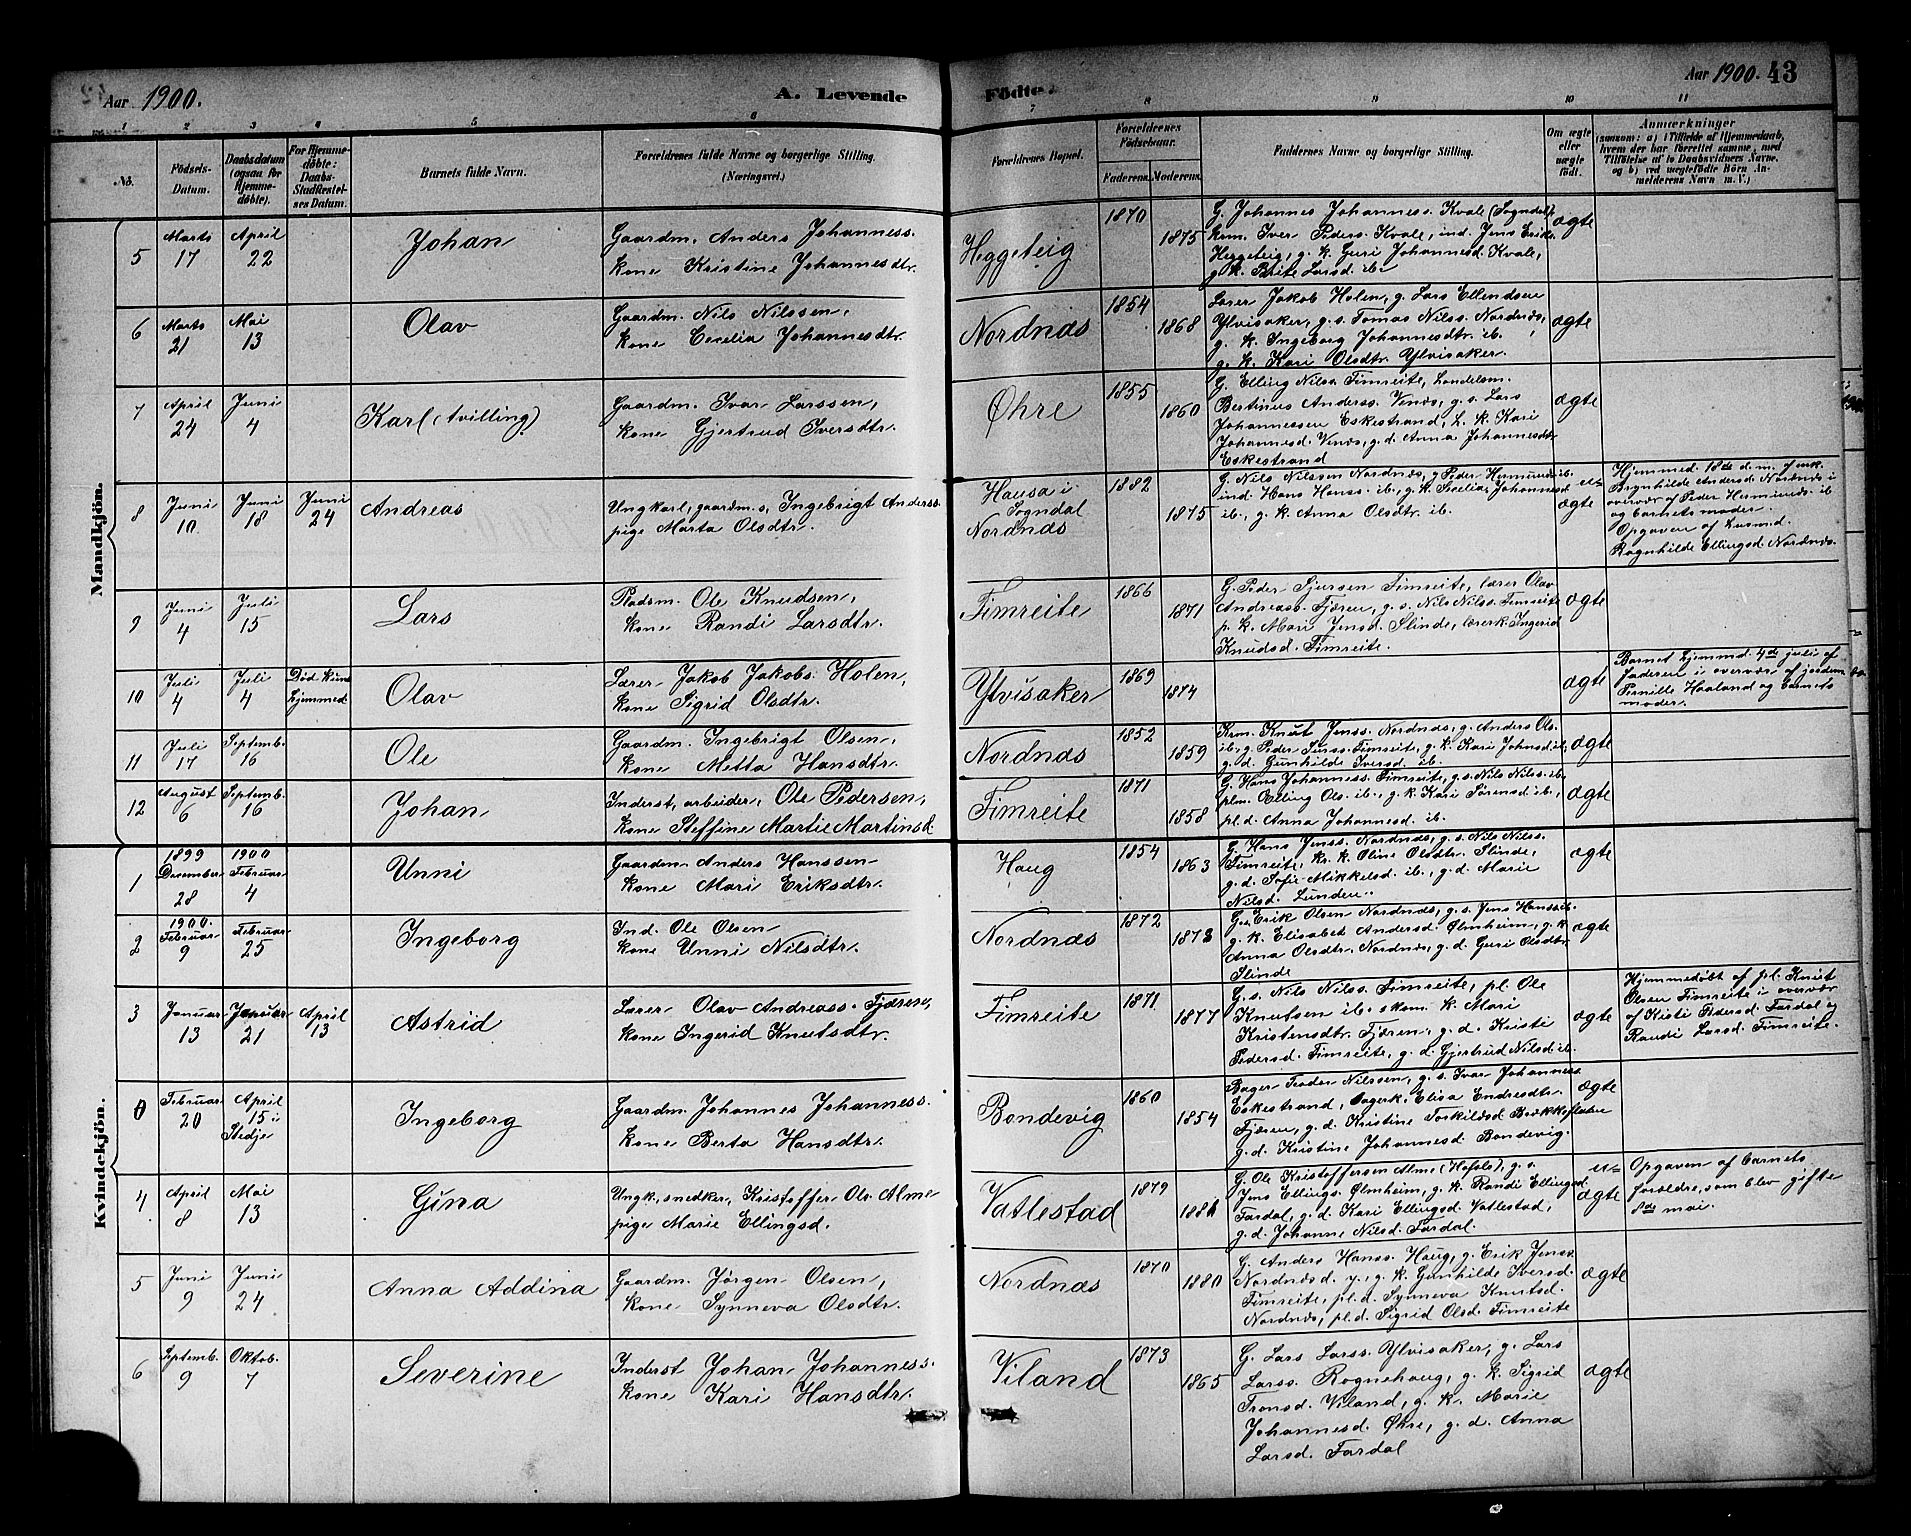 Aar 1900.
A. Levende
Födte.
Aar 1900. 43
1 2 3 4 5 6 7 8 9 10 11
No.
Födsels-
Datum.
Daabsdatum
(ogsaa for
Hjemme-
döbte).
For Hjemme-
döbte:
Daabs-
Stadfæstel-
ses Datum.
Barnets fulde Navn.
Forældrenes fulde Navne og borgerlige Stilling.
(Næringsvei.)
Forældrenes Bopæl.
Forældrenes
Födselsaar.
Faderens. Moderens.
Faddernes Navne og borgerlige Stilling.
Om ægte
eller
uægte
födt.
Anmærkninger
(saasom: a) i Tilfælde af Hjemmedaab,
hvem der har forrettet samme, med
Tilföielse af to Daabsvidners Navne,
og b) ved uægtefödte Börn An-
melderens Navn m. V.)
Mandkjön.
5
Marts
17
April
22
Johan
Gaardm. Anders Johanness.
kone Kristine Johannesdtr.
Heggeteig
1870
1875
G. Johannes Johanness. Kvale (Sogndal),
krm. Iver Peders. Kvale, ind. Jens Eriks.
Heggeteig, g. k. Guri Johannesd. Kvale,
g. k. Brite Larsd. ib.
ægte
6
Marts
21
Mai
13
Olav
Gaardm. Nils Nilssen,
kone Cecilia Johannesdtr.
Nordnæs
1854
1868
Lærer Jakob Holen, g. Lars Ellendsen
Ylvisaker, g. s. Tomas Nilss. Nordnæs,
g. k. Ingeborg Johannesdtr. ib.
g. k. Kari Olsdtr. Ylvisaker.
ægte
7
April
24
Juni
4
Karl (tvilling)
Gaardm. Ivar Larssen,
kone Gjertrud Iversdtr.
Øhre
1855
1860
G. Elling Nilss. Fimreite, Landelsm.
Bertinus Anderss. Venæs, g. s. Lars
Johannessen Eskestrand, L. k. Kari
Johannesd. Venæs, g. d. Anna Johannesdtr
Eskestrand
ægte
8
Juni
10
Juni
18
Juni
24
Andreas
Ungkarl, gaardm. s., Ingebrigt Anderss.
pige Marta Olsdtr.
Hausa i
Sogndal
Nordnæs
1882
1875
G. Nils Nilssen Nordnæs, g. Peder Hermunds. ib.
ind. Hans Henss. ib., g. k. Secelia Johannesd
ib., g. k. Anna Olsdtr. ib.
u-
ægte
Hjemmed. 18de d. m. af enk.
Brynhilde Andersd. Nordnæs i
overvær af Peder Hermunds. ib
og barnets moder.
Opgaven af husmd.
Ragnhilde Ellingsd. Nordnæs.
9
Juni
4
Juli
15
Lars
Pladsm. Ole Knudsen,
kone Randi Larsdtr.
Fimreite
1866
1871
G. Peder Sjursen Fimreite, lærer Olav
Andreass. Fjæren, g. s. Nils Nilss. Fimreite
p. k. Mari Jensd. Slinde, lærerk. Ingerid
Knudsd. Fimreite.
ægte
10
Juli
4
Juli
4
Død kun
hjemmed
Olav
Lærer Jakob Jakobs. Holen,
kone Sigrid Olsdtr.
Ylvisaker
1869
1874
ægte
Barnet hjemmd. 4de juli af
faderen i overvær af jordem.
Pernille Haaland og barnets
moder.
11
Juli
17
Septemb.
16
Ole
Gaardm. Ingebrigt Olsen,
kone Metta Hansdtr.
Nordnæs
1852
1859
Krm. Knut Jenss. Nordnæs, g. Anders Ols.
ib., g. Peder Jenss. Fimreite, g. k. Kari Johnsd. ib,
g. d. Gunhilde Iversd. ib.
ægte
12
August
6
Septemb.
16
Johan
Inderst, arbeider, Ole Pedersen,
kone Steffine Martie Martinsd
Fimreite
1871
1858
G. Hans Johanness. Fimreite, g. s. Nils Nils. ib.
plm. Elling Ols. ib., g. k. Kari Sørensd. ib.,
pl. d. Anna Johannesd. ib.
ægte
Kvindekjön.
1
1899
December
28
1900
Februar
4
Unni
Gaardm. Anders Hanssen
kone Mari Eriksdtr.
Haug
1854
1863
G. Hans Jenss. Nordnæs, g. s. Nils Nilss.
Fimreite, kr. k. Oline Olsdtr. Slinde,
g. d. Sofie Mikkelsd. ib., g. d. Marie
Nilsd. Lunden.
ægte
2
1900.
Februar
9
Februar
25
Ingeborg
Ind. Ole Olsen
kone Unni Nilsdtr.
Nordnæs
1872
1873
G. Erik Olsen Nordnæs, g. s. Jens Hanss. ib.
g. k. Elisabet Andersd. Ølmheim, g. k
Anna Olsdtr. Nordnæs, g. d. Guri Olsdtr.
Slinde
ægte
3
Januar
13
Januar
21
April
13
Astrid
Lærer Olav Andreass. Fjæren,
kone Ingerid Knutsdtr.
Fimreite
1871
1877
G. s. Nils Nilss. Fimreite, pl. Ole
Knutsen ib. skm. k. Mari
Kristensdtr. Fjæren, g. d. Kristi
Pedersd. Fimreite, g. d. Gjertrud Nilsd. ib.
ægte
Hjemmedøbt af pl. Knut
Olsen Fimreite i overvær
af Kisti Pedersd. Fardal og
Randi Larsd. Fimreite.
0
Februar
20
April
15 i
Stedje
Ingeborg
Gaardm. Johannes Johanness.
kone Berta Hansdtr.
Bondevig
1860
1854
Bager Peder Nilssen, g. s. Ivar Johanness
Eskestrand, bagerk. Elisa Endresdtr.
Fjæren, g. d. Kristine Torkildsd Brækkeflaten
g. d. Kristine Johannesd. Bondevig.
ægte
4
April
8
Mai
13
Gina
Ungk., snedker, Kristoffer Ols. Alme
pige Marie Ellingsd.
Vatlestad
1879
1881
G. Ole Kristoffersen Alme (Hafslo), g. s.
Jens Ellings. Ølmheim, g. k. Randi Ellingsd.
Fardal, g. d. Kari Ellingsd. Vatlestad,
g. d. Johanne Nilsd. Fardal.
u-
ægte
Opgaven af barnets
forældre, som blev gifte
8de mai.
5
Juni
9
Juni
24
Anna Addina
Gaardm. Jörgen Olsen,
kone Synneva Olsdtr.
Nordnæs
1870
1880
G. Anders Hanss. Haug, g. Erik Jenss.
Nordnæs d. y., g. k. Gunhilde Iversd.
Fimreite, pl. d. Synneva Knutsd.
Nordnæs, pl. d. Sigrid Olsd. Fimreite
ægte
6
Septemb.
9
Oktob.
7
Severine
Inderst Johan Johanness.
kone Kari Hansdtr.
Viland
1873
1865
G. Lars Larss. Ylvisaker, g. Lars
Larss. Rognehaug, g. k. Sigrid
Tronsd. Viland, g. k. Marie
Johannesd. Øhre, g. d. Anna
Larsd. Fardal
ægte